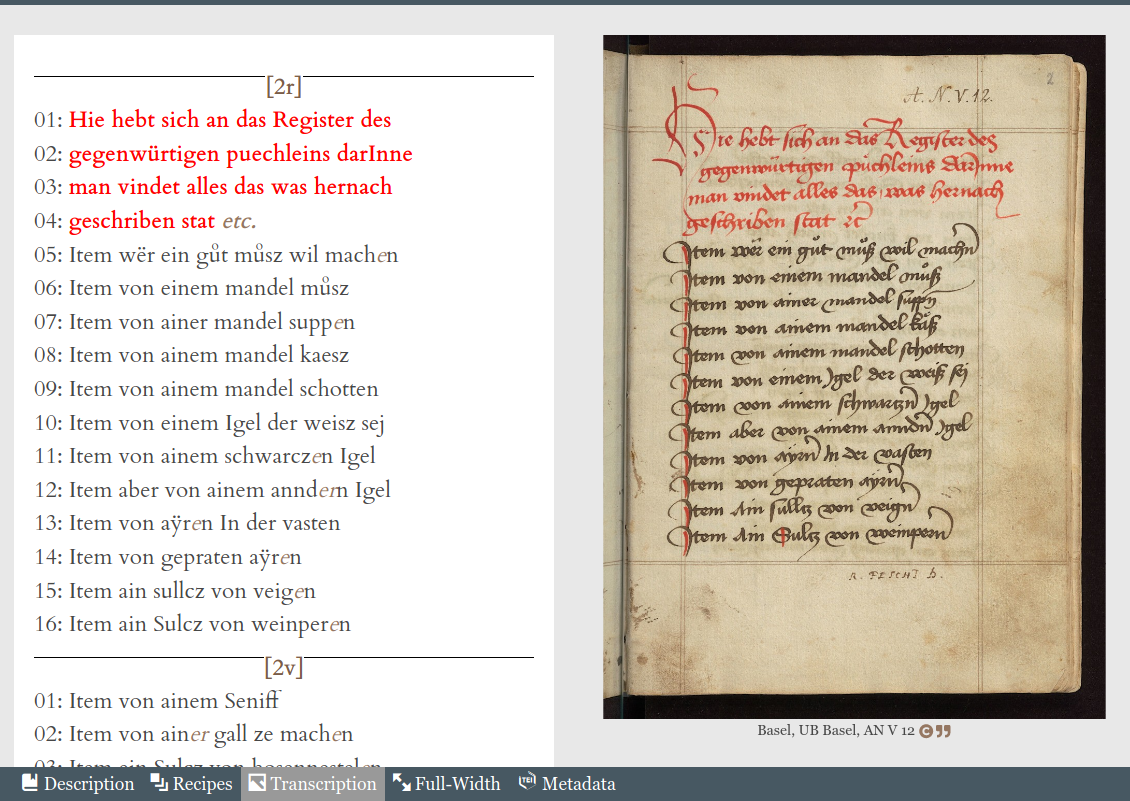 [2r]
01: Hie hebt sich an das Register des
02: gegenwürtigen puechleins darInne
03: man vindet alles das was hernach
04: geschriben stat etc.
05: Item wër ein gůt můsz wil machen
06: Item von einem mandel můsz
07: Item von ainer mandel suppen
08: Item von ainem mandel kaesz
09: Item von ainem mandel schotten
10: Item von einem Igel der weisz sej
11: Item von ainem schwarczen Igel
12: Item aber von ainem anndern Igel
13: Item von aÿren In der vasten
14: Item von gepraten aÿren
15: Item ain sullcz von veigen
16: Item ain Sulcz von weinperen
[2v]
01: Item von ainem Seniff
02: Item von ainer gall ze machen
03: Item ain Sulcz von hosennestelen
2
A. N. V. 12.
Hie hebt sich an das Register des
gegenwürtigen püchleins darInne
man vindet alles das was hernach
geschriben stat ꝛc̄
Item wër ein gůt můß wil machn̄
Item von einem mandel můß
Item von ainer mandel suppn̄
Item von ainem mandel kaͤß
Item von ainem mandel schotten
Item von einem Igel der weiß sej
Item von ainem schwarczn̄ Igel
Item aber von ainem anndn̄ Igel
Item von aÿrn̄ In der vasten
Item von gepraten aÿrn̄
Item Ain sullcz von veign̄
Item Ain Sulcz von weinpern̄
Basel, UB Basel, AN V 12
Description Recipes Transcription Full-Width Metadata